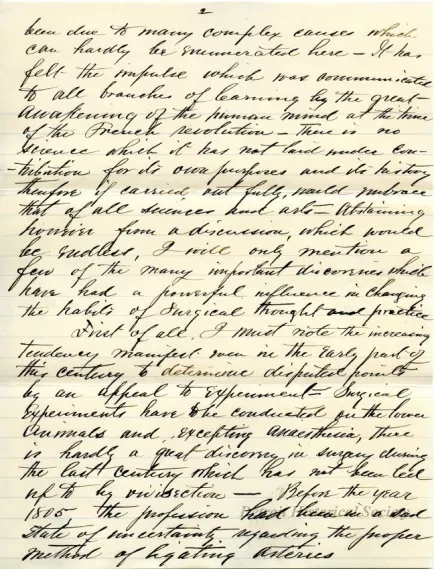 2
been due to many complex causes which
can hardly be enumerated here – It has
felt the impulse which was communicated
to all branches of learning by the great
awakening of the human mind at the time
of the French revolution – There is no
science which it has not laid under con-
-tribution for its own purposes and its history
therefore if carried out fully, would embrace
that of all sciences and arts – Abstaining
however from a discussion, which would
be endless, I will only mention a
few of the many important discoveries which
have had a powerful influence in changing
the habits of surgical thought and practice
First of all, I must note the increasing
tendency manifest even in the early part of
this century to determine disputed points
by an appeal to experiment – Surgical
experiments have to be conducted on the lower
animals and, excepting Anaesthesia, there
is hardly a great discovery in surgery during
the last century which has not been led
up to by vivisection — Before the year
1805 the profession had been in a sad
state of uncertainty regarding the proper
method of ligating arteries